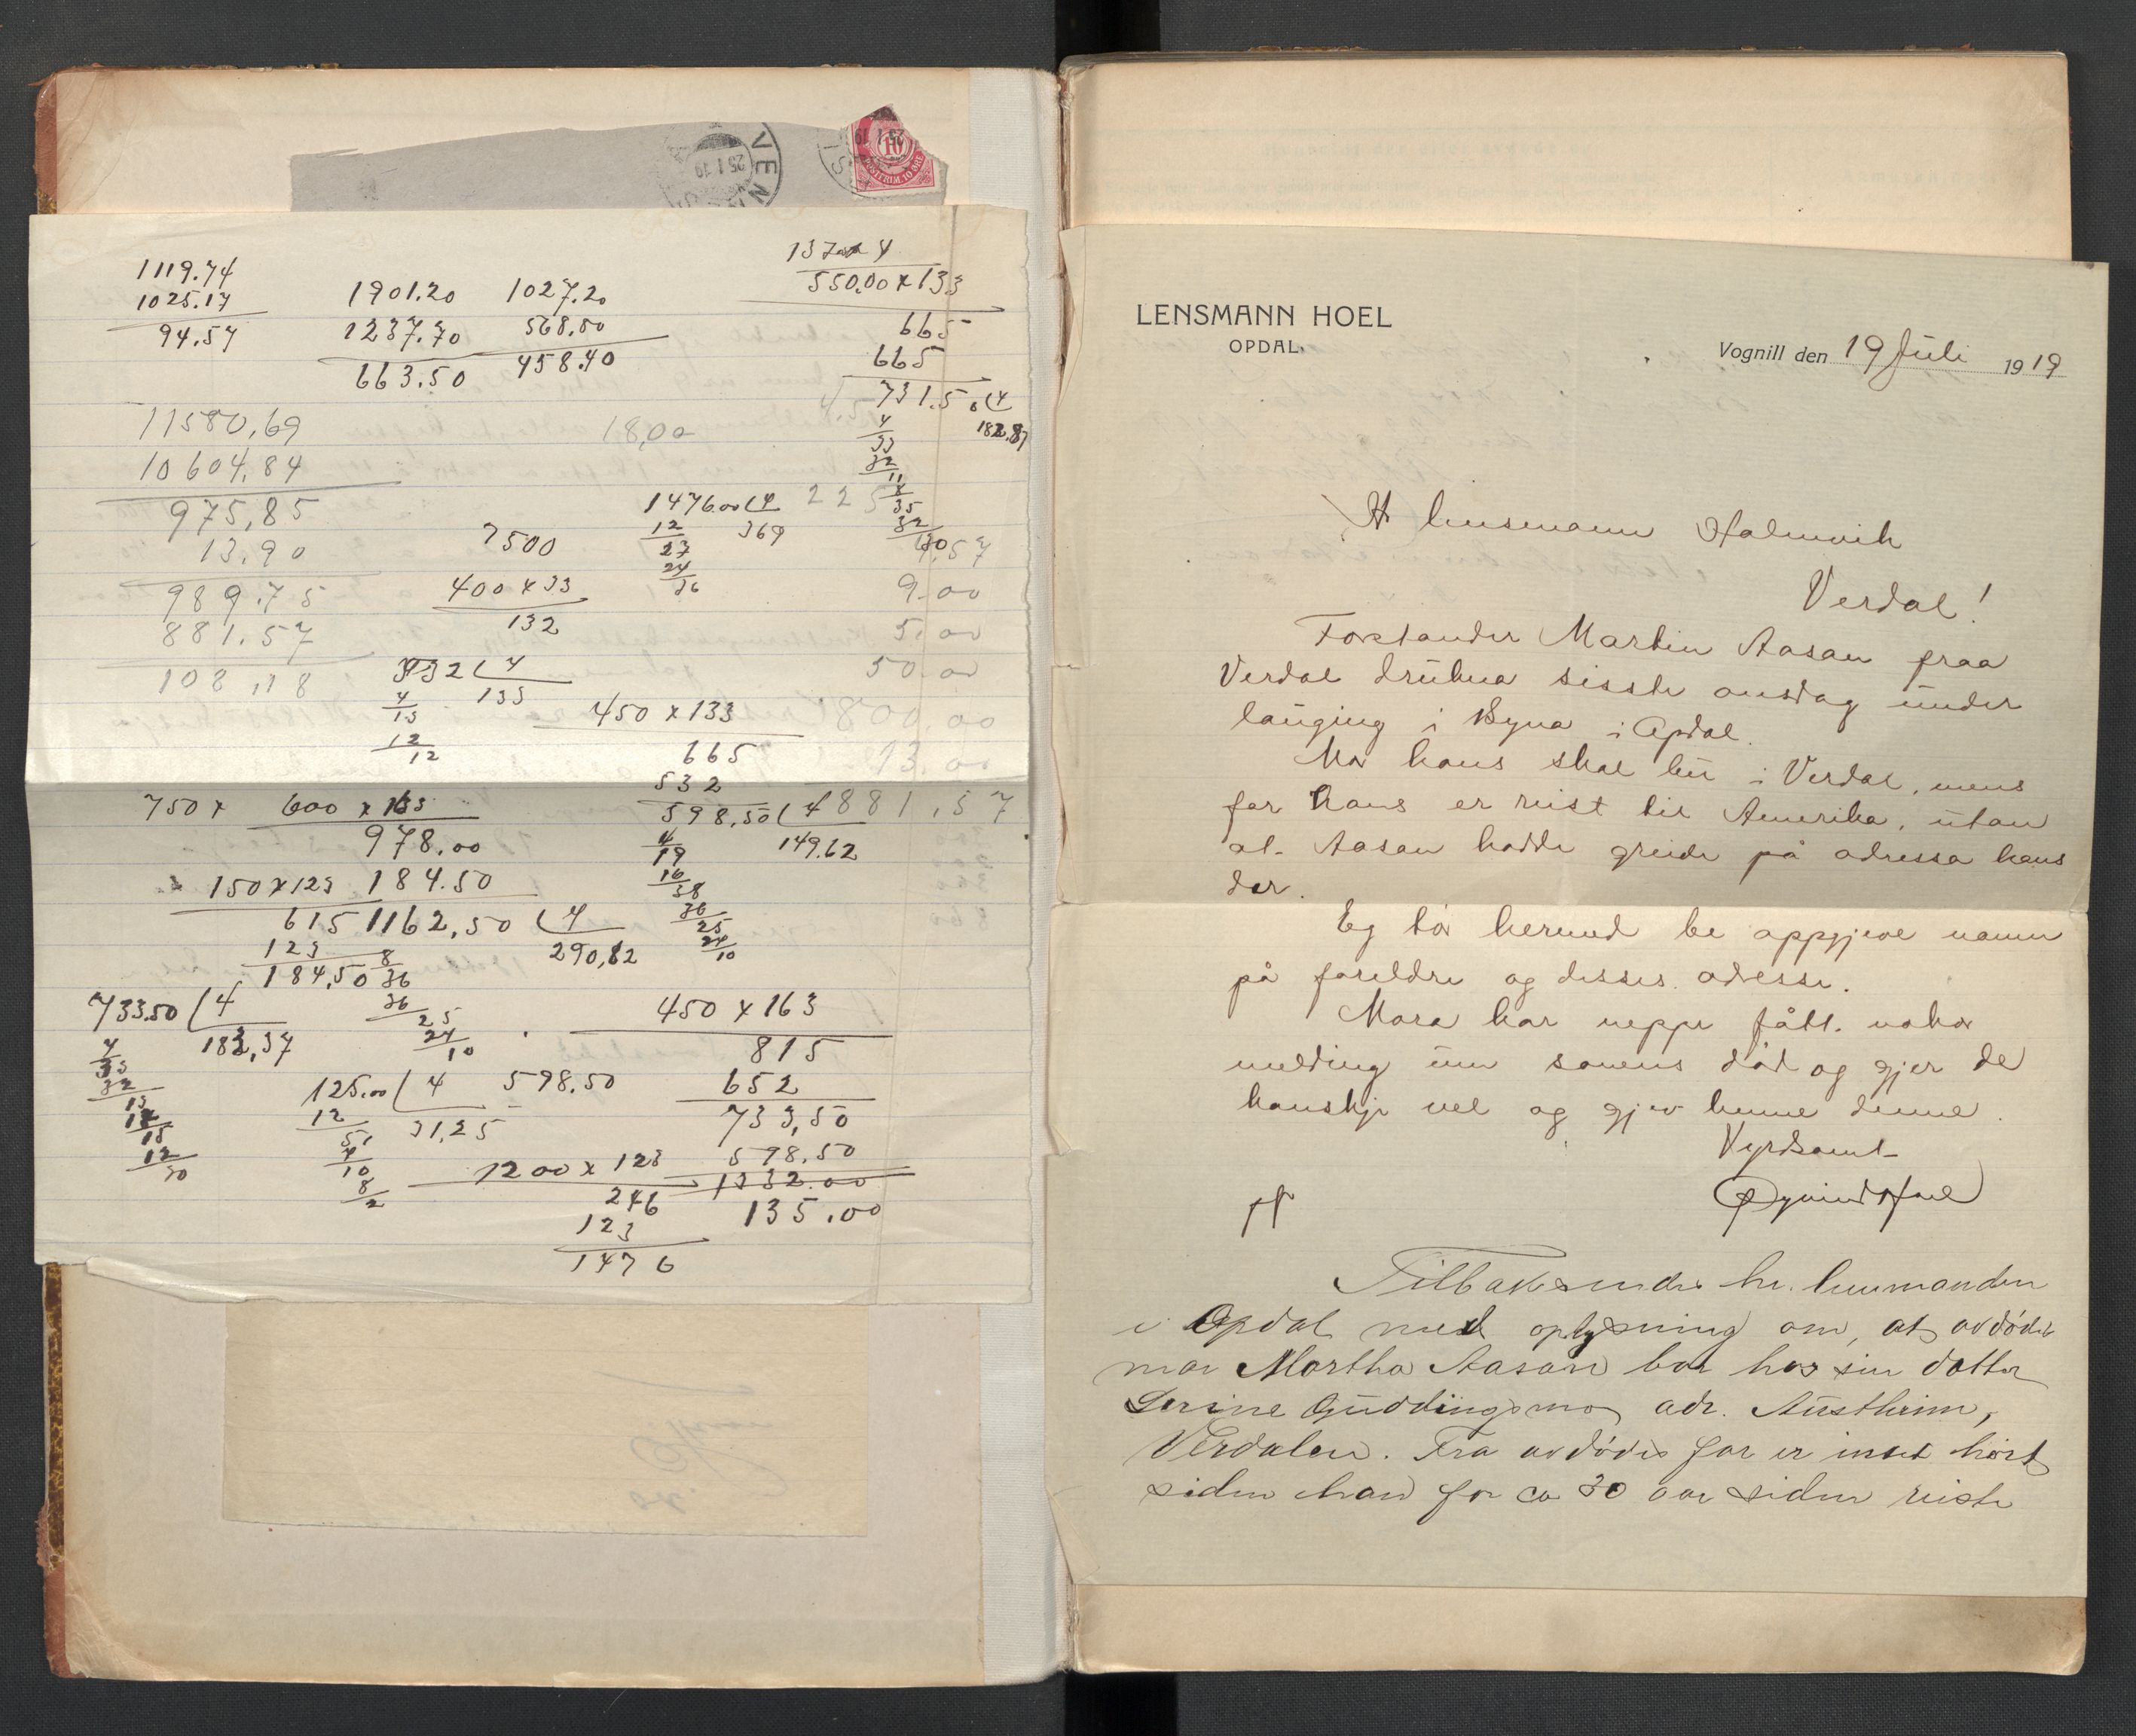 VEN
25 I 19
10
POSTFRIM. 10 ØRE
1119.74
1025.17
94.57
1901.20
1237.70
663.50
1027.20
568.80
458.40
550.00 x 133
665
665
731.5
182.87
11580,69
10604,84
975,85
13.90
989.75
881.57
108,18
18,00
1476.00 ( 4
12
369
27
24
36
225
7500
400 x 33
132
532 ( 4
4
133
13
12
12
9.00
5.00
50.00
800.00
13.00
881,57
450 x 133
665
532
598,50 ( 4
149.62
4
19
16
38
36
25
24
10
750 x 600 x 163
978.00
150 x 123 184.50
615 1162,50 ( 4
123
290,62
184,50
8
36
36
25
24
10
733.50 ( 4
183,37
4
33
32
13
12
15
12
30
450 x 163
815
652
733,50
598.50
1332.00
135.00
125.00 ( 4
12
31,25
5
4
10
8
2
598.50
1200 x 123
246
123
1476
LENSMANN HOEL
OPDAL.
Vognill den 19 Juli 1919
Hr lensmann Holmvik
Verdal!
Forstander Martin Aasan fraa
Verdal drukna sisste onsdag under
lauging i Byna i Opdal.
Mor hans skal bu i Verdal, mens
far hans er reist til Amerika, utan
at Aasan hadde greide på adressa hans
der.
Eg bør hermed be oppgjeve namn
på foreldre og disses adresse.
Mora har neppe fått noka
melding um sonens død og gjer de
kanskje vel og gjev henne denne.
Vyrdsamt
Øyvind Hoel
Tilbakesendes hr. lensmanden
i Opdal med oplysning om, at avdødes
mor Martha Aasan bor hos sin datter
Serine Guddingsmo adr. Austheim,
Verdalen. Fra avdødes far er intet hørt
siden han for ca 30 aar siden reiste